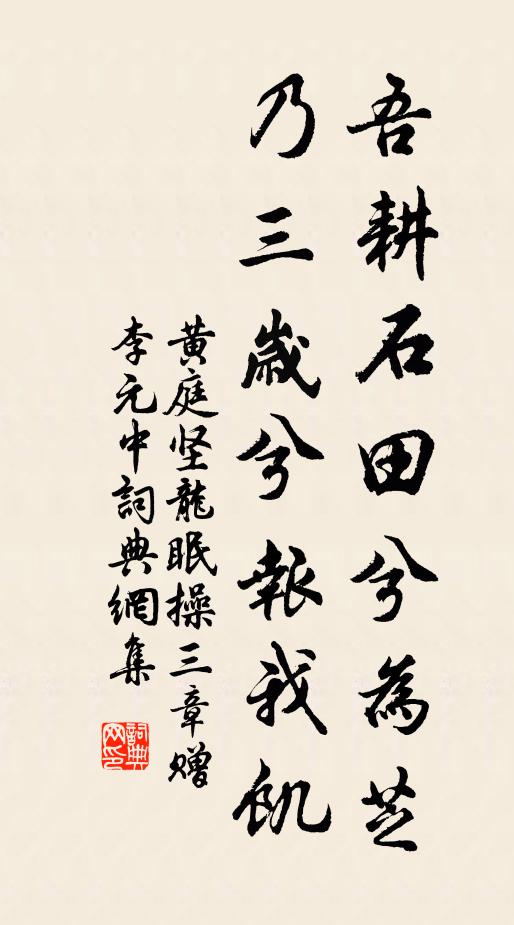 吾耕石田兮為芝
乃三歲兮報我飢
黄庭坚龍眠操三章赠
李元中詞典網集
詞典
网印